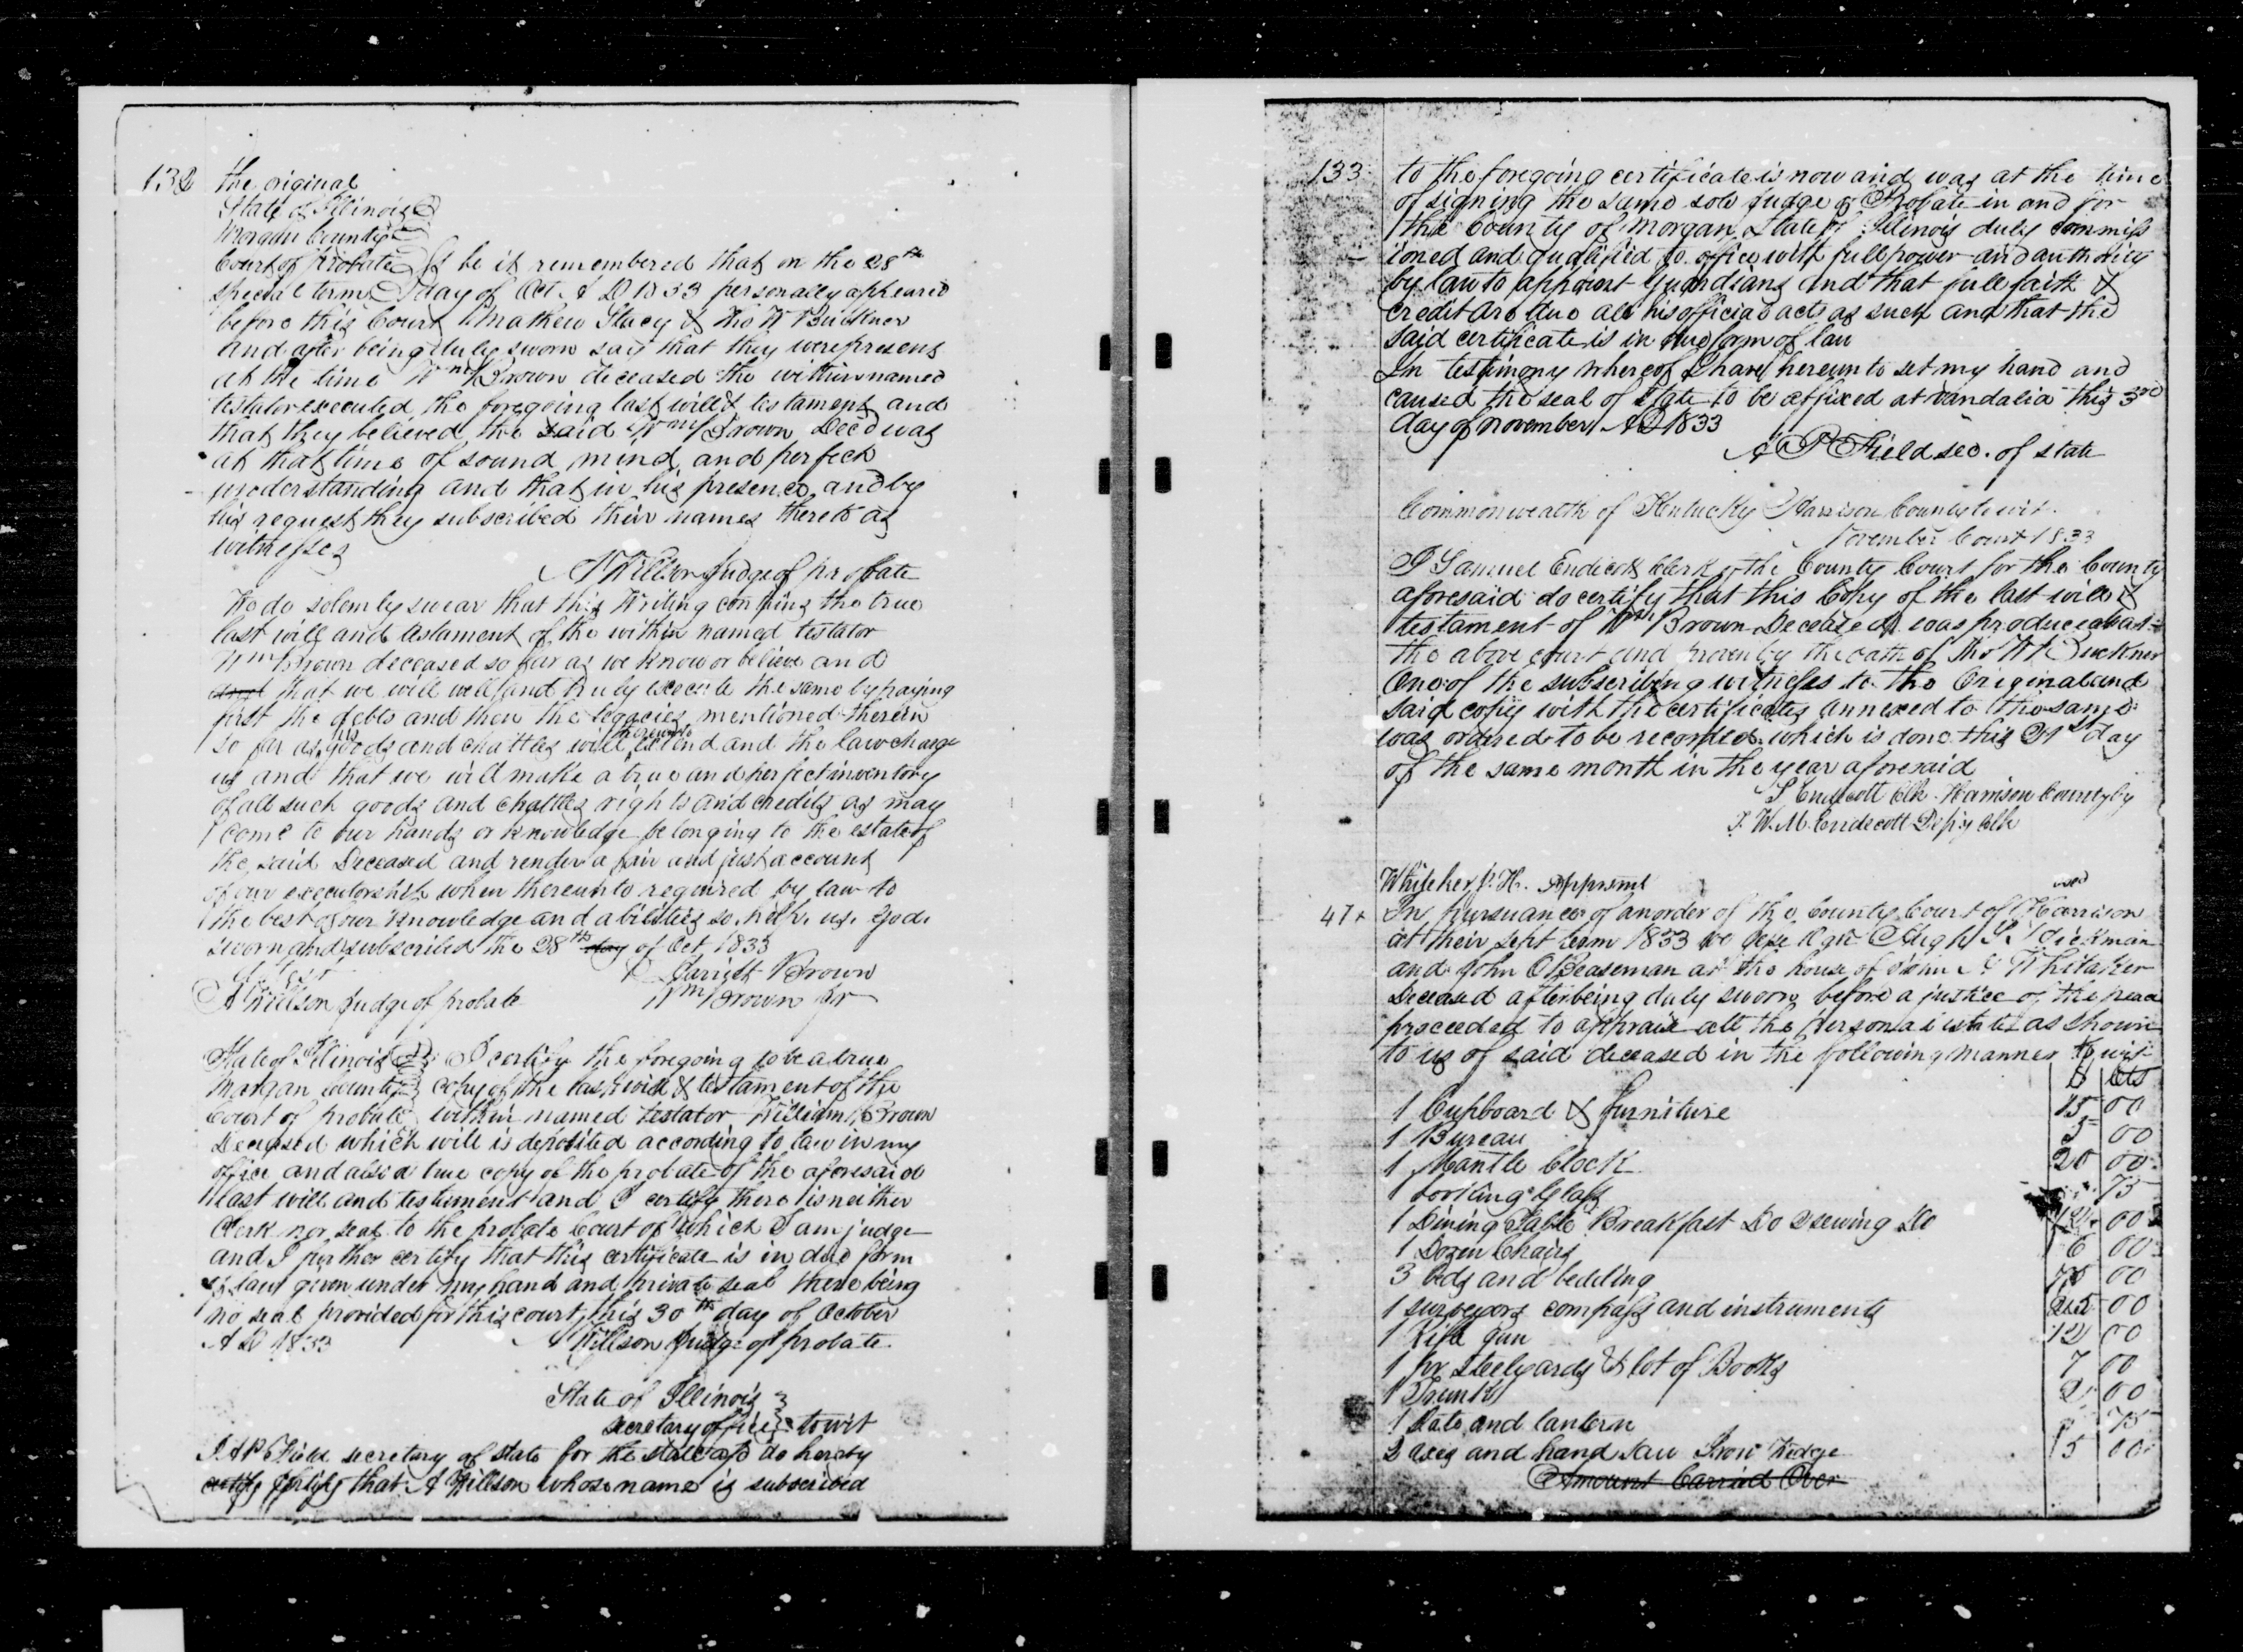 132 the original
State of Illinois
Morgan County
Court of probate Be it remembered that on the 28th
special term day of Oct. A D 1833 personally appeared
before this Court Mathew Stacy & Tho W Buckner
and after being duly sworn say that they were present
at the time Wm Brown deceased the within named
testator executed the foregoing last will & testament and
that they believed the said Wm Brown Decd was
at that time of sound mind and perfect
understanding and that in his presence and by
his request they subscribed their names thereto as
witnesses
A Willson judge of probate
We do solemly swear that this Writing contains the true
last will and testament of the within named testator
Wm Brown deceased so far as we know or believe and
and that we will well and truly execute the same by paying
first the debts and then the legacies mentioned therein
so far as his goods and chattles will thereunto extend and the law charge
us and that we will make a true and perfect inventory
of all such goods and chattles rights and credits as may
come to our hands or knowledge belonging to the estate of
the said Deceased and render a fair and just account
of our executorship when thereunto required by law to
the best of our knowledge and abilities so help us God.
sworn and subscribed the 28th day of Oct 1833
Attest Jarriott Brown
A Willson judge of probate Wm Brown jr
State of Illinois I certify the foregoing to be a true
Morgan County copy of the last will & testament of the
Court of probate within named testator William Brown
Deceased which will is deposited according to law in my
office and also a true copy of the probate of the aforesaid
last will and testament and I certify there is neither
Clerk nor seal to the probate Court of which I am judge
and I further certify that this certificate is in due form
of law given under my hand and private seal there being
no seal provided for this court, this 30th day of October
A D 1833 A Willson judge of probate
State of Illinois
secretary office towit
I A P Field secretary of state for the state afo do hereby
certify that A Willson whose name is subscribed
133 to the foregoing certificate is now and was at the time
of signing the same sole judge of Probate in and for
the County of Morgan State of Illinois duly commiss
ioned and qualified to office with full power and authority
by law to appoint Guardians and that full faith &
credit are due all his official acts as such and that the
said certificate is in due form of law
In testimony whereof I have hereunto set my hand and
caused the seal of state to be affixed at Vandalia this 3rd
day of november AD 1833
A P Field sec. of state
Commonwealth of Kentucky Harrison County to wit.
November Court 1833
I Samuel Endicott Clerk of the County Court for the County
aforesaid do certify that this Copy of the last will &
testament of Wm Brown Deceased was produced at
the above court and proven by the oath of Tho W Buckner
One of the subscribing witnesses to the Original and
said copy with the certificates annexed to the same
was ordered to be recorded which is done this 21st day
of the same month in the year aforesaid
S Endicott Clk Harrison County by
J. W. M. Endecott Depty Clk
Whiteker Apprsmt
47 In pursuance of an order of the County Court of Harrison
at their sept term 1833 we Hugh Dickman
and John C Beaseman at the house of Whitaker
Deceased after being duly sworn before a justice of the peace
proceeded to appraise all the personal estate as shown
to us of said deceased in the following manner towit
D Cts
1 Cupboard & furniture 15 00
1 Bureau 5 00
1 Mantle Clock 20 00
1 Looking Glass 75
1 Dining Table Breakfast Do Sewing Do 12 00
1 Dozen Chairs 6 00
3 beds and bedding 75 00
1 surveyors compass and instruments 25 00
1 Rifle gun 12 00
1 pr steelyards & lot of Books 7 00
1 Trunk 2 00
1 and lantern 75
2 axes and hand saw Iron Wedge 5 00
Amount Carried Over